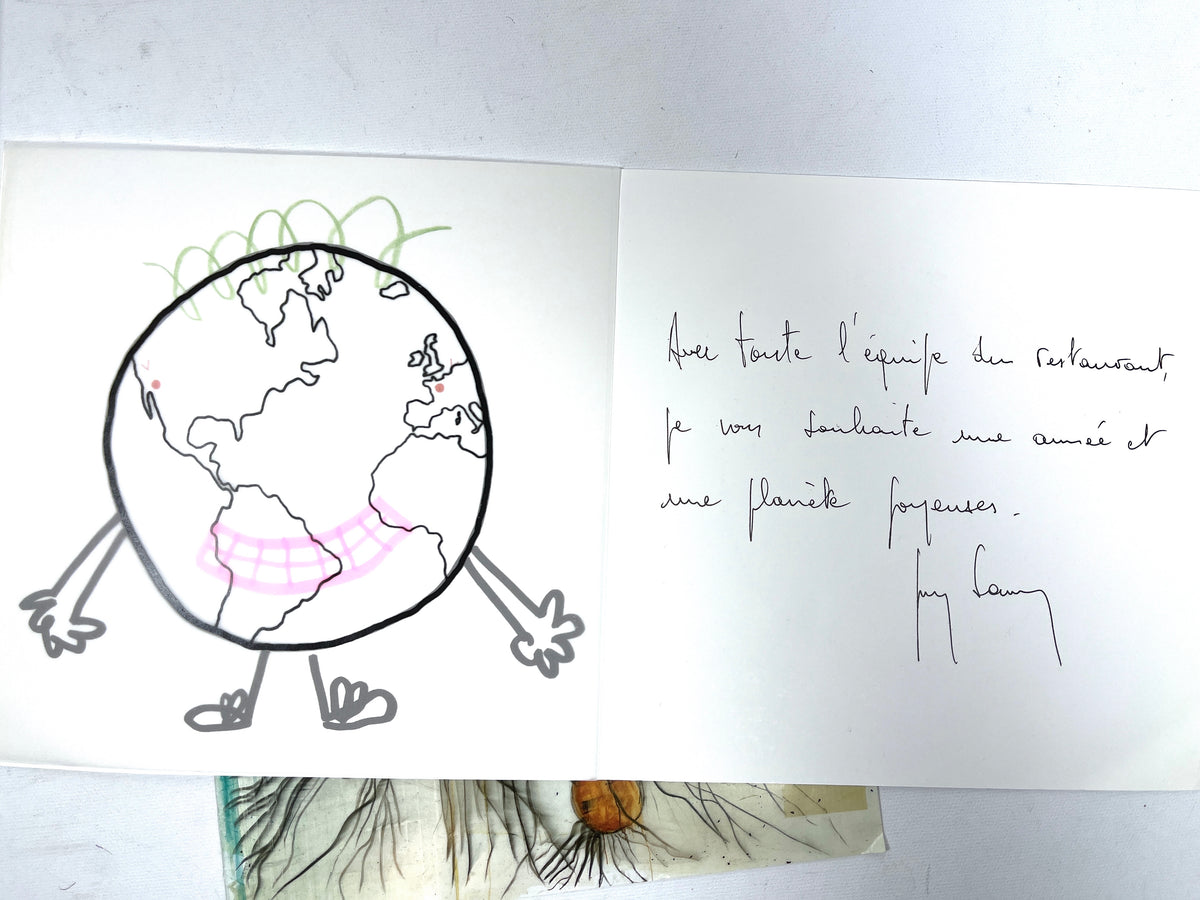 Avec toute l'équipe du restaurant,
je vous souhaite une année et
une planète joyeuses.
Guy Savoy